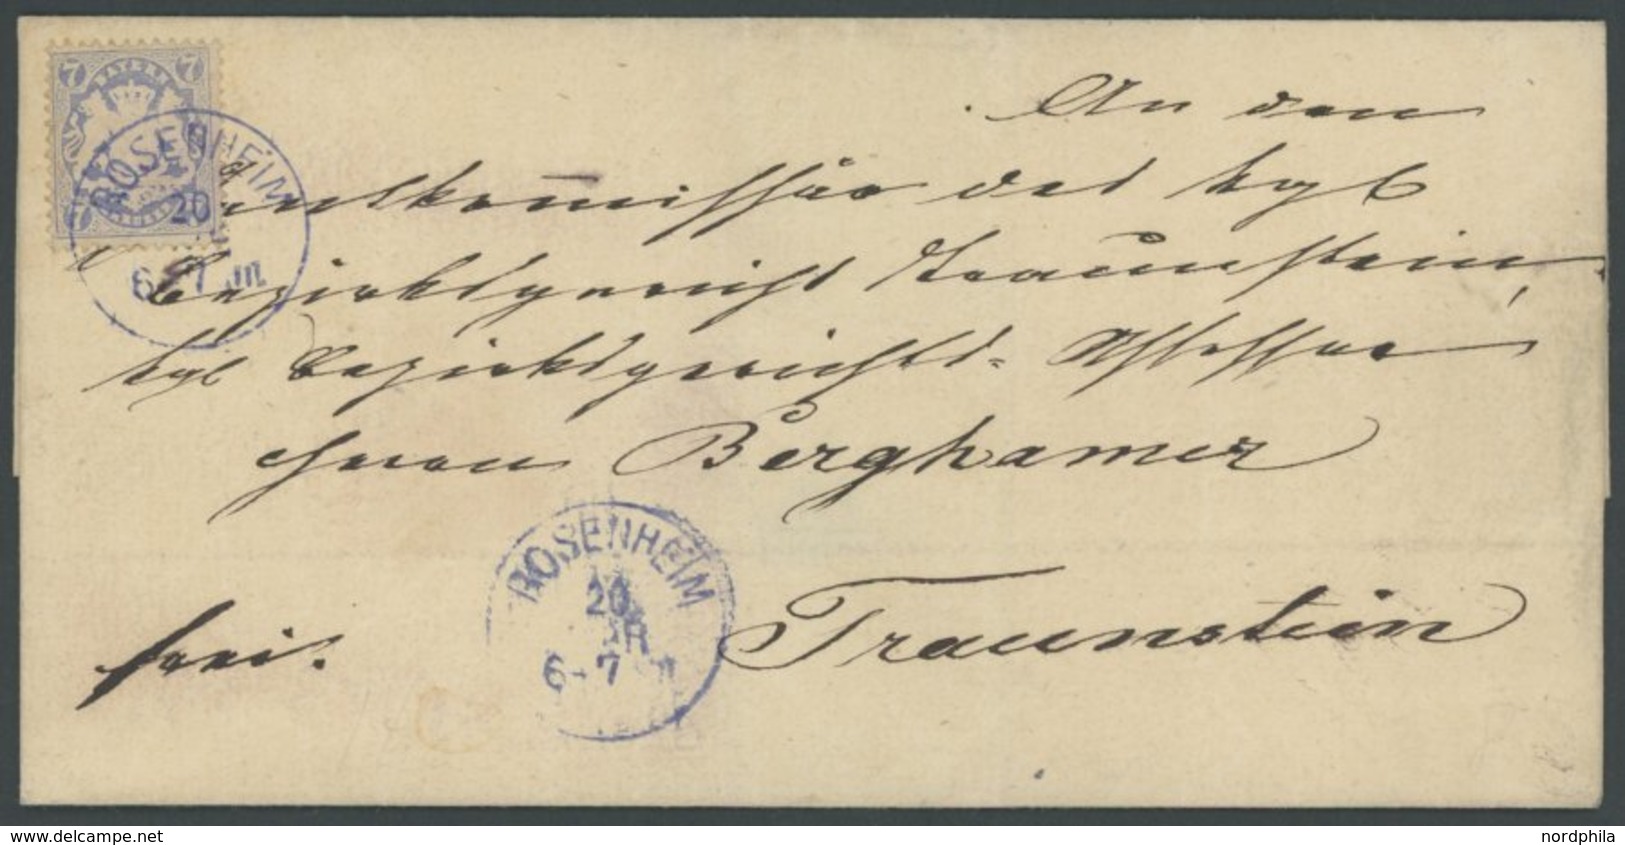 7 BAYERN 7
ROSENHEIM
20
6-7 m
An den
kommissär des kgl
Bezirksgericht Traunstein,
kgl Bezirksgerichts- Assessor
Herrn Berghamer
ROSENHEIM
20
6-7
frei.
Traunstein
www.delcampe.net
nordphila